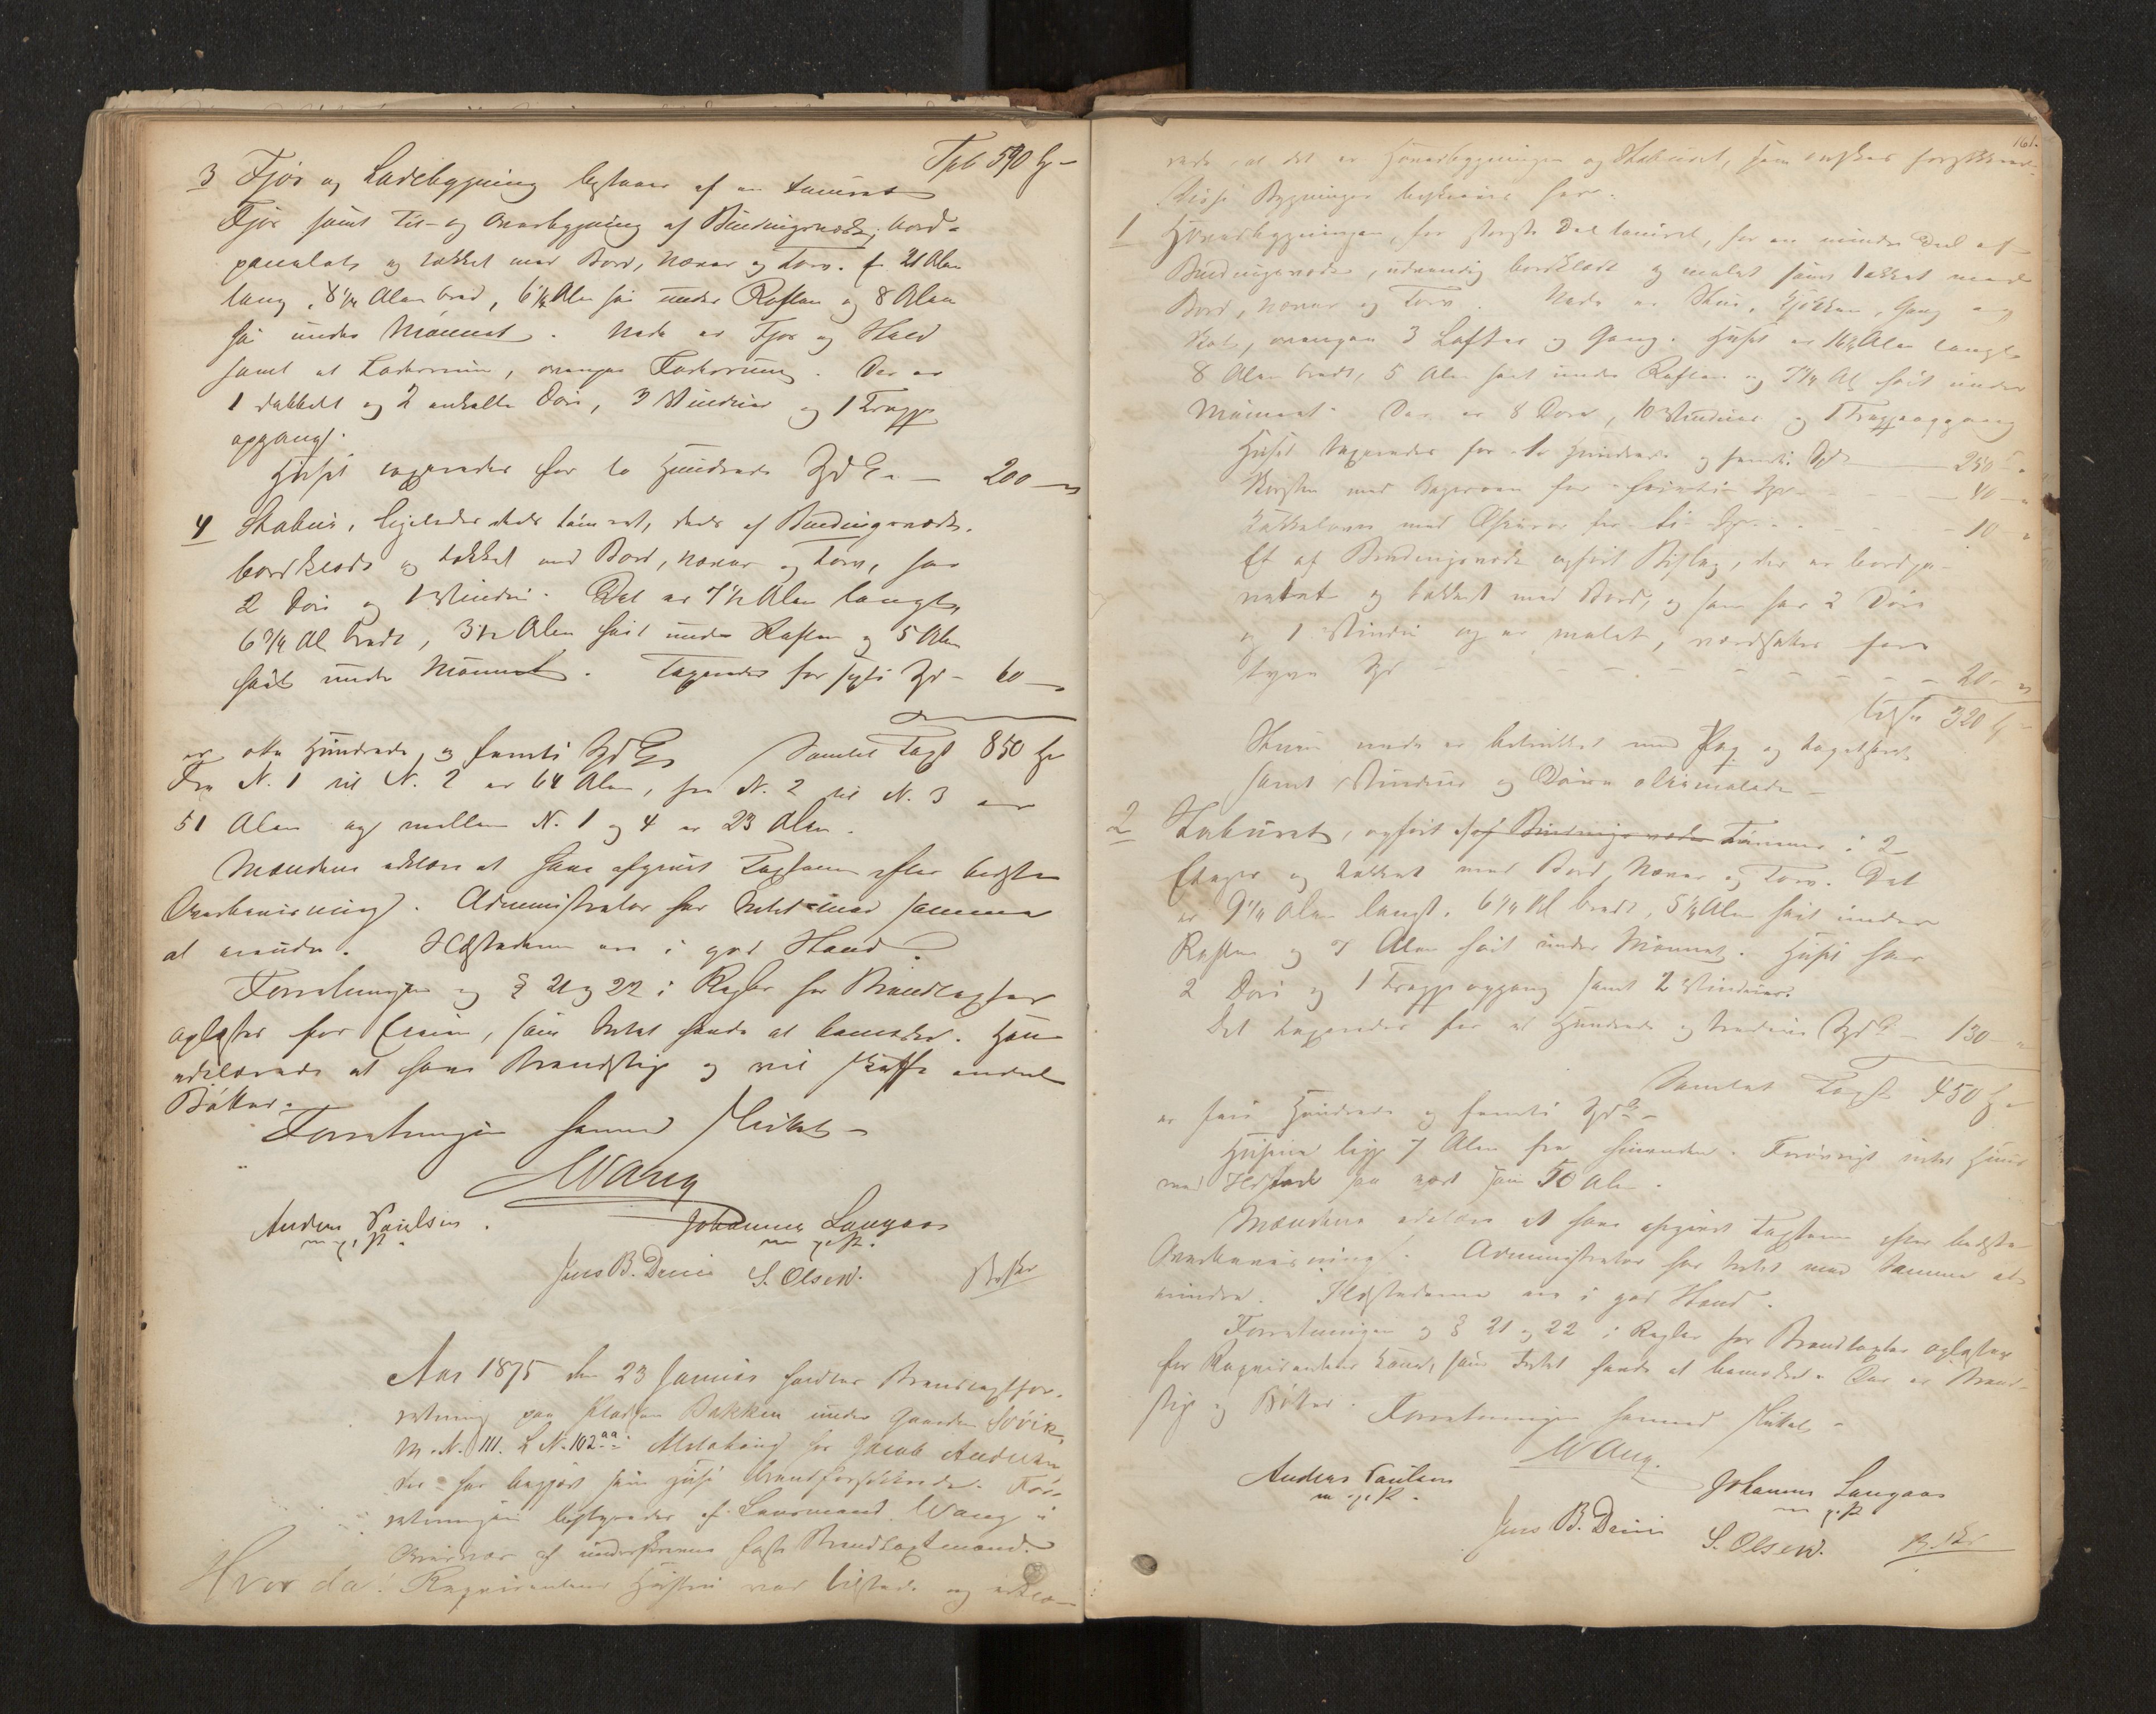 Tpt 590 Sp –
3 Fjøs og Ladebygning bestaaer af en tømret
Fjøs samt Til- og Overbygning af Bindingsværk, bord-
panelet og tækket med Bord, Næver og Torv. 21 Alen
lang, 8 1/4 Alen bred, 6 1/4 Alen høi under Raften og 8 Alen
høi under Mønnet. Nede er Fjøs og Stald
samt et Laderum, ovenpaa Foderrum. Der er
1 dobbelt og 2 enkelte Døre, 3 Vinduer og 1 Trappe
opgang.
Huset taxeredes for to Hundrede Spd – 200 –
4 Stabur, ligeledes deels tømret, deels af Bindingsværk,
bordklædt og tækket med Bord, Næver og Torv, har
2 Døre og 1 Vindue. Det er 7 1/2 Alen langt,
6 3/4 Al bredt, 3 1/2 Alen høit under Raften og 5 Alen
høit under Mønnet. Taxeredes for sexti Spd – 60 –
er otte Hundrede og femti Spd Samlet Taxt 850 Sp
Fra N. 1 til N. 2 er 64 Alen, fra N. 2 til N. 3 er
51 Alen og mellem N. 1 og 4 er 23 Alen.
Mændene erklære at have afgivet Taxterne efter bedste
Overbeviisning. Administrator har Intet imod samme
at erindre. Ildstederne ere i god Stand.
Forretningen og § 21 og 22 i Regler for Brandtaxter
oplæstes for Eieren, som Intet havde at bemærke. Han
erklærede at have Brandstige og vil skaffe andet
Bøtter.
Forretningen hermed sluttet –
Wang
Anders Paulsen. Johannes Langaas
m. p. P. m. p. P.
Jens B. Deiii S. Olsen.
Aar 1875 den 23 Januar holdtes Brandtaxtfor-
retning paa Pladsen Bakken under Gaarden Søvik,
M. N. 111. L N. 102 aa i Alstahoug for Jacob Andersen
der har begjært sine Huse brandforsikkrede. For-
retningen bestyredes af Lensmand Wang i
Overvær af undertegnede faste Brandtaxtmænd.
Hvor da: Reqvirentens Hustru var tilstede og erklæ-
161.
rede, at det er Hovedbygningen og Staburet, som ønskes forsikkrede.
Disse Bygninger beskrives saa:
1 Hovedbygningen, for største Del tømret, for en mindre Deel af
Bindingsværk, udvendig bordklædt og malet samt tækket med
Bord, Næver og Torv. Nede er Stue, Kjøkken, Gang og
Kove, ovenpaa 3 Lofter og Gang. Huset er 16 1/4 Alen langt
8 Alen bredt, 5 Alen høit under Raften og 7 1/4 Al høit under
Mønnet. Der er 8 Døre, 10 Vinduer og 1 Trappeopgang
Huset taxeredes for to Hundrede og femti Spd – 250 –
Skorsten med Bagerovn for førti Spd – 40 –
Kakkelovn med Tilbehør for ti Spd – 10 –
Et af Bindingsværk opført Bislag, der er bordpa-
nelet og tækket med Bord, og som har 2 Døre
og 1 Vindue og er malet, værdsættes for
tyve Spd – 20 –
tilsa 320 Sp
Stuen nede er betrukket med Pap og tapetseret
samt Vinduer og Døren oliemalede –
2 Staburet, opført af Bindingsværk Tømmer i 2
Etager og tækket med Bord, Næver og Torv. Det
er 9 1/4 Alen langt, 6 3/4 Al bredt, 5 1/4 Alen høit under
Raften og 7 Alen høit under Mønnet. Huset har
2 Døre og 1 Trappeopgang samt 2 Vinduer.
Det taxeredes for et Hundrede og tredive Spd – 130 –
Samlet Taxt 450 Sp
er fire Hundrede og femti Spd –
Husene ligge 7 Alen fra hinanden. Forøvrigt intet Huus
med Ildsted saa nært som 50 Alen.
Mændene erklære at have afgivet Taxterne efter bedste
Overbeviisning. Administrator har Intet mod Samme at
erindre. Ildstederne ere i god Stand.
Forretningen og § 21 og 22 i Regler for Brandtaxter oplæstes
for Reqvirentens Kone, som Intet havde at bemærke. Der er Brand-
stige og Bøtter. Forretningen hermed sluttet –
Wang.
Anders Paulsen Johannes Langaas
m. p. P. m. p. P.
Jens B. Deiii S. Olsen.